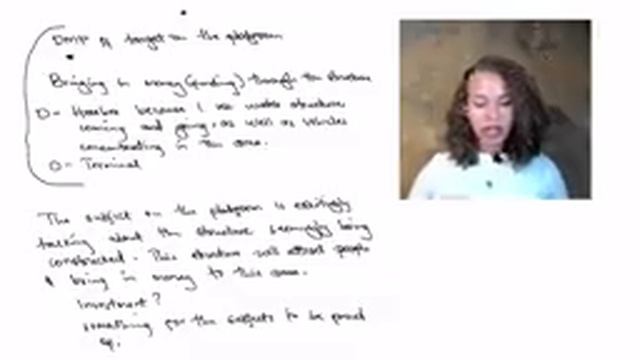 Desc of target on the platform
Bringing in money (funding) through the structure
D - Harbor because I see water structure
coming and going, as well as vehicles
concentrating in the area.
D - Terminal
The subject on the platform is excitingly
talking about the structure seemingly being
constructed. This structure will attract people
& bring in money to this area.
Investment?
something for the subjects to be proud
of.